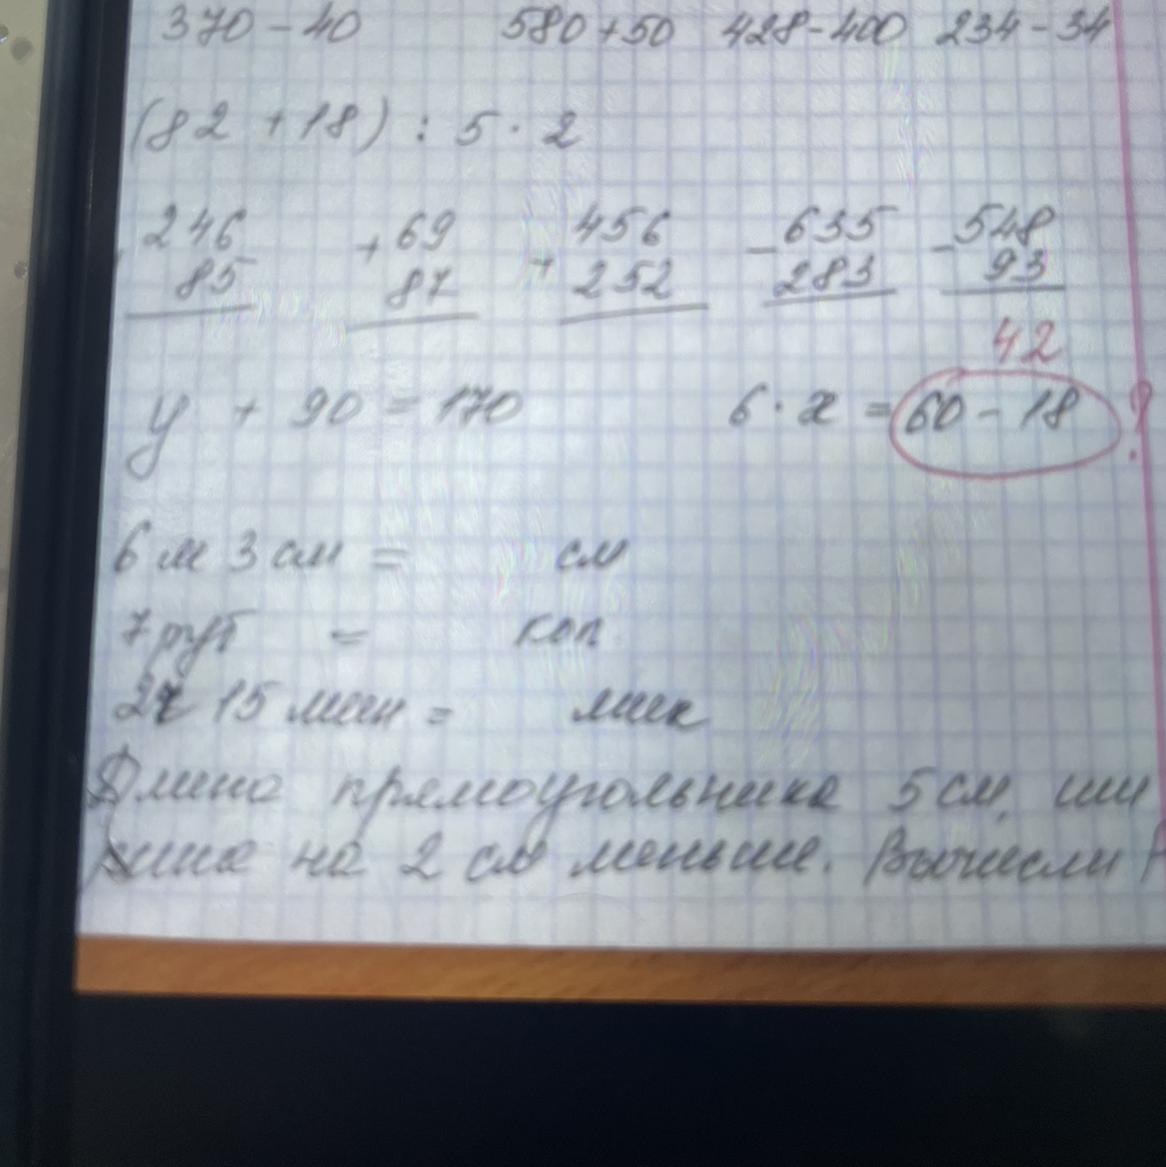 370 - 40 580 + 50 428 - 400 234 - 34
(82 + 18) : 5 · 2
246 + 69 + 456 - 635 - 548
85 87 252 283 93
42
у + 90 = 170 6 · х = 60 - 18 ?
6 м 3 см = см
7 руб = коп
2ч 15 мин = мин
Длина прямоугольника 5 см, ши
рина на 2 см меньше. Вычисли Р